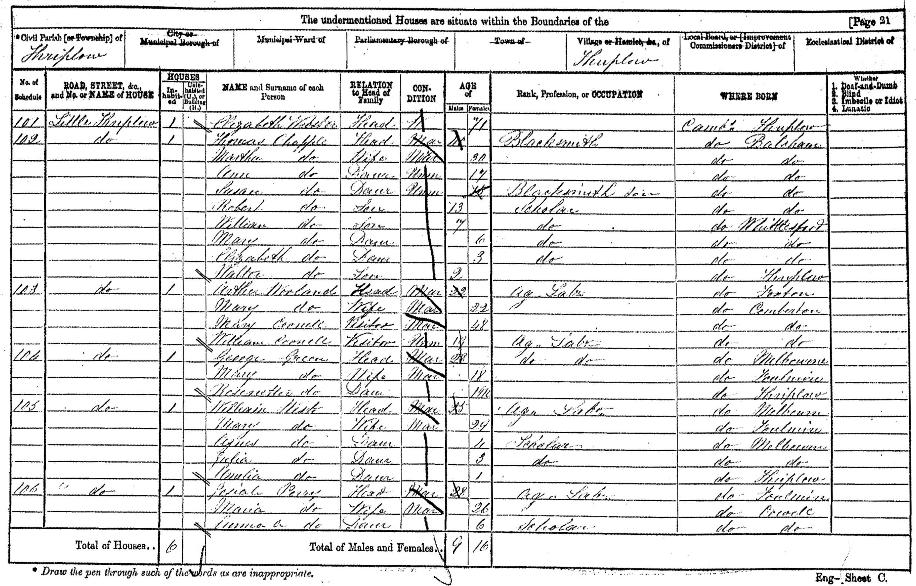 The undermentioned Houses are situate within the Boundaries of the [Page 21
*Civil Parish [or Township] of City or Municipal Borough of Municipal Ward of Parliamentary Borough of Town of Village or Hamlet, &c., of Local Board, or [Improvement Commissioners District] of Ecclesiastical District of
Thriplow Thriplow
No. of Schedule ROAD, STREET, &c., and No. or NAME of HOUSE HOUSES In-habited Uninhabited (U.), or Building (B.) NAME and Surname of each Person RELATION to Head of Family CON-DITION AGE of Males Females Rank, Profession, or OCCUPATION WHERE BORN Whether 1. Deaf-and-Dumb 2. Blind 3. Imbecile or Idiot 4. Lunatic
101 Little Thriplow 1 Elizabeth Webster Head 71 Camb's Thriplow
102 do 1 Thomas Head Mar Blacksmith do
Martha do Wife Mar do do
Ann do Daur Unm 17 do do
Susan do Daur Unm Blacksmith do do
Robert do Son 13 Scholar do do
William do Son 7 do do Whittlesford
Mary do Daur 6 do do do
Elizabeth do Daur 3 do do do
Walter do Son do Thriplow
103 do 1 Head Mar 22 Ag. Labr do
Mary do Wife Mar 22 do Comberton
Mary Cornell Visitor Mar 48 do do
William Cornell Visitor Unm 18 Ag. Labr do do
104 do 1 George Green Head Mar 28 do do do Melbourne
Mary do Wife Mar 18 do Foulmire
do Daur do Thriplow
105 do 1 William Head Mar 25 Ag. Labr do Melbourn
Mary do Wife Mar 24 do Foulmire
Agnes do Daur 4 Scholar do Melbourne
Julia do Daur 3 do do do
Amelia do Daur 1 do Thriplow
106 do 1 Josiah Perry Head Mar 28 Ag. Labr do Foulmire
Maria do Wife Mar 26 do
Emma do Daur 6 Scholar do do
Total of Houses.. 6 Total of Males and Females.. 9 16
* Draw the pen through such of the words as are inappropriate.
Eng- Sheet C.